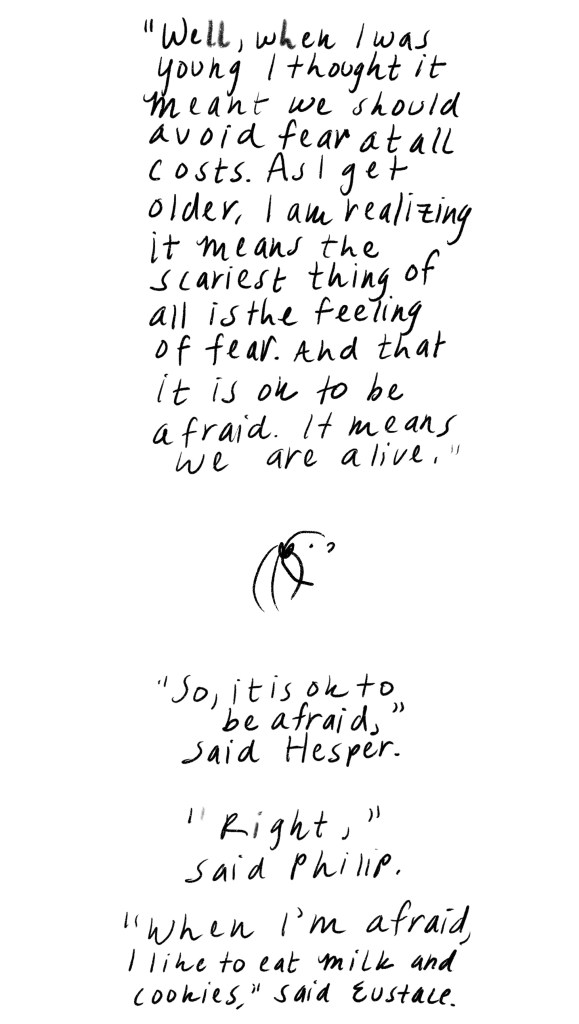 "Well, when I was
young I thought it
meant we should
avoid fear at all
costs. As I get
older, I am realizing
it means the
scariest thing of
all is the feeling
of fear. And that
it is ok to be
afraid. It means
we are alive."
"So, it is ok to
be afraid,"
said Hesper.
"Right,"
said Philip.
"When I'm afraid,
I like to eat milk and
cookies," said Eustace.